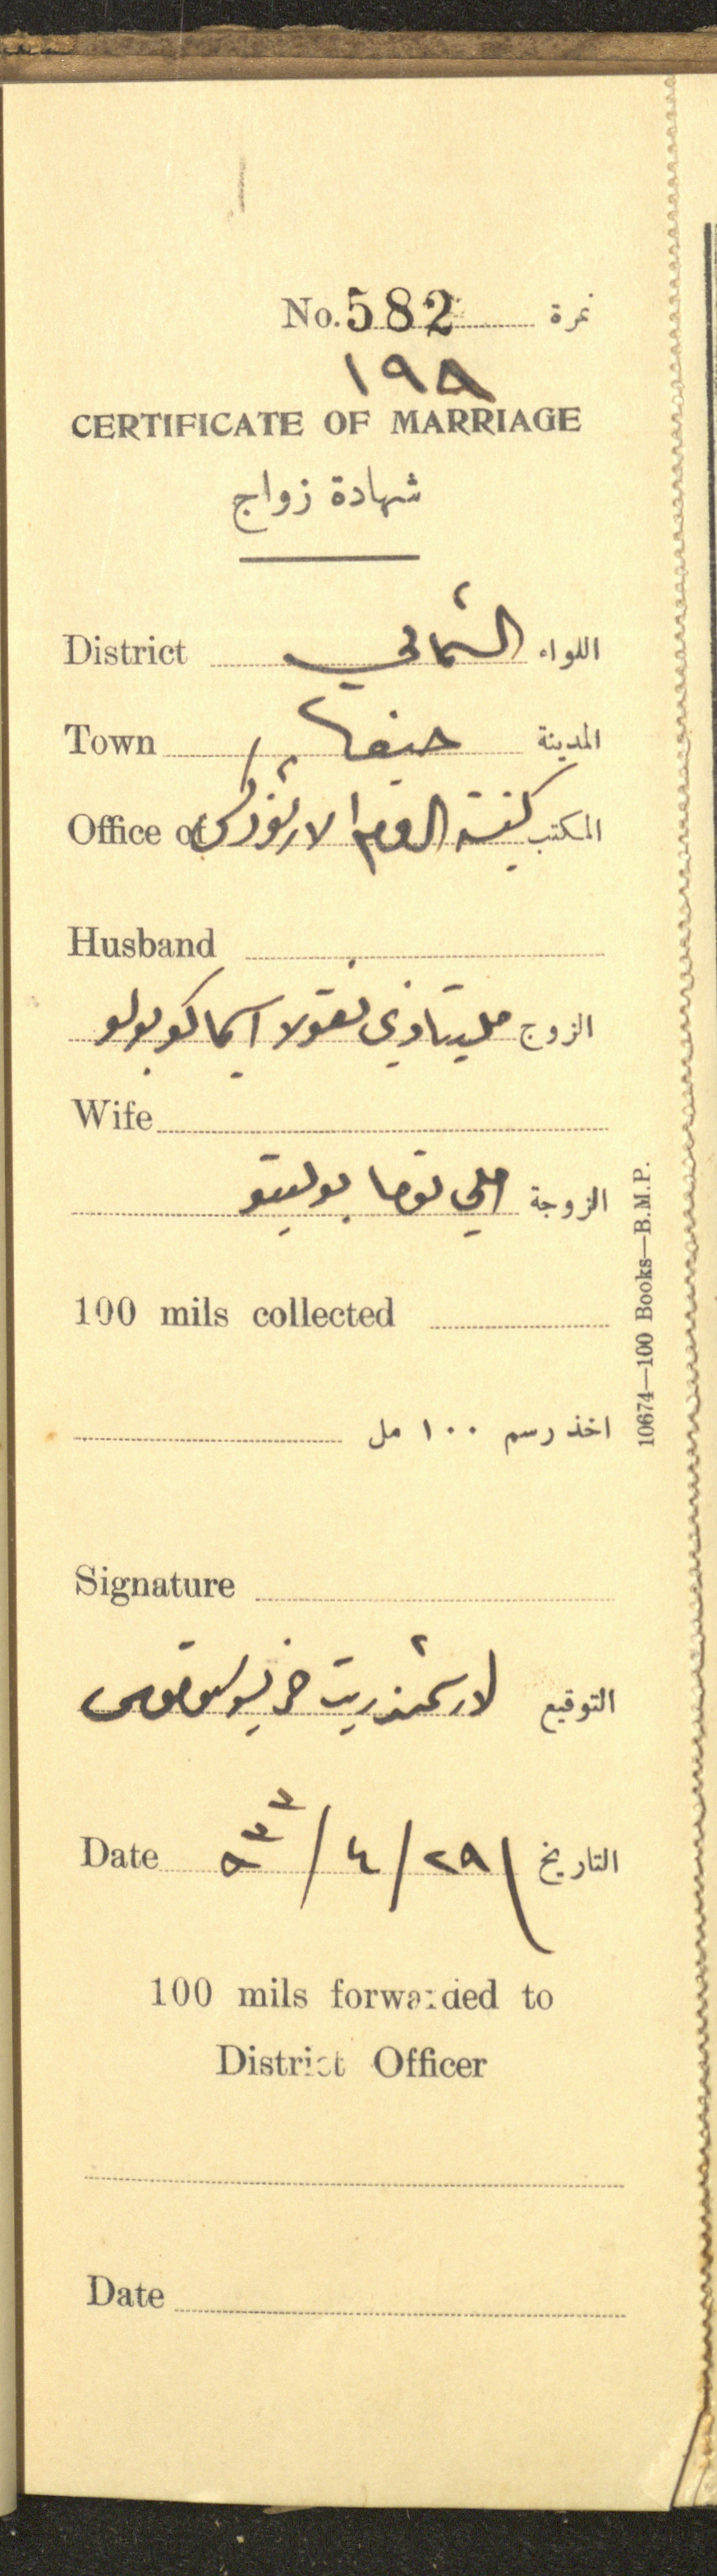 No. 582 نمرة
١٩٨
CERTIFICATE OF MARRIAGE
شهادة زواج
District الشمالي اللواء
Town حيفا المدينة
Office of كنيسة الروم الارثوذكس المكتب
Husband
الزوج ملتيادي نقولا اسماكوبولو
Wife
الزوجة املي توما بوليتو
100 mils collected
اخذ رسم ١٠٠ مل
Signature
التوقيع الارشمندريت
Date ٢٩/٤/٩٣٣ التاريخ
100 mils forwarded to
District Officer
Date
10674—100 Books—B.M.P.